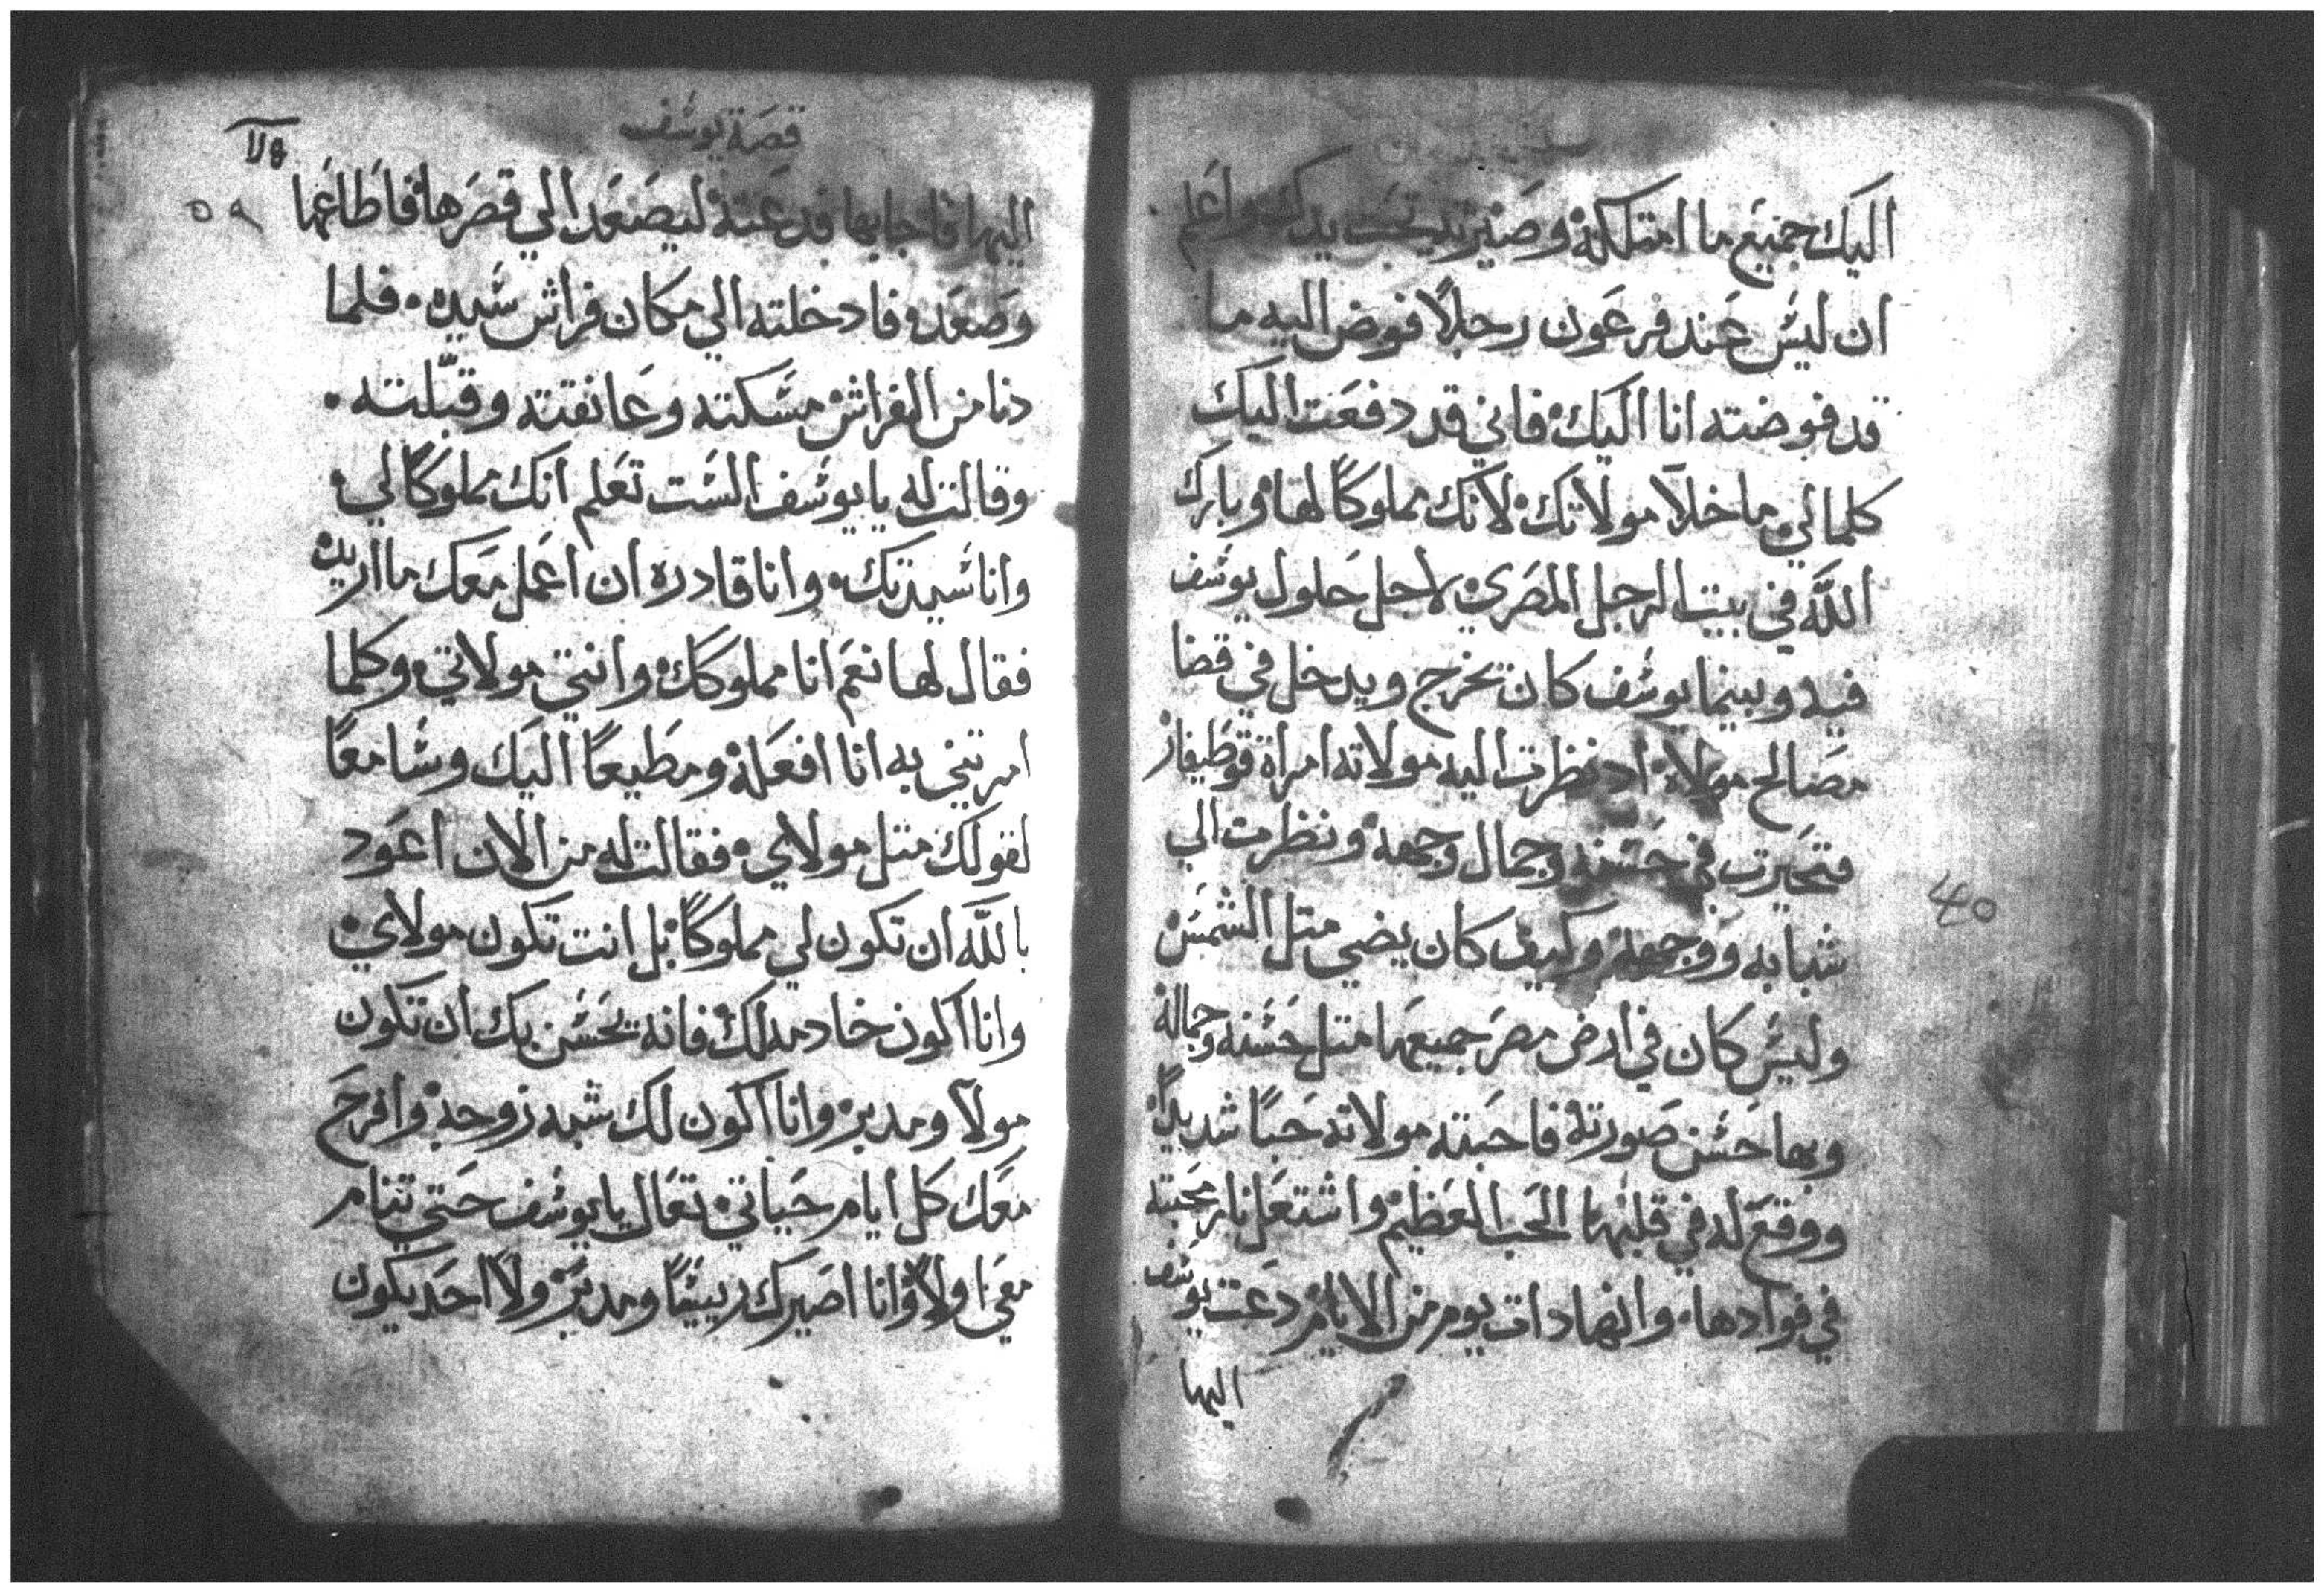 اليك جميع ما امتلكه وصيرته تحت يدك واعلم
ان ليس عند فرعون رجلاً فوض اليه ما
قد فوضته انا اليك فاني قد دفعت اليك
كلمالي ما خلا مولاتك لانك مملوكاً لها وبارك
الله في بيت الرجل المصري لاجل حلول يوسف
فيه وبينما يوسف كان يخرج ويدخل في قضا
مصالح مولاه اد نظرت اليه مولاته امراة قوطيفار
فتحيرت في حسنه وجمال وجهه ونظرت الي
شبابه ووجهه وكيف كان يضي متل الشمس
وليس كان في ارض مصر جميعها متل حسنه وجماله
وبها حسن صورته فاحبته مولاته حباً شديداً
ووقع له في قلبها الحب العظيم واشتعل نار محبته
في فوادها وانها دات يوم من الايام دعت يوسف
اليها
40
قصة يوسف
٥٩
اليها فاجابها فدعته ليصعد الي قصرها فاطاعها
وصعد فادخلته الي مكان فراش سيده فلما
دنا من الفراش مسكته وعانقته وقبّلته
وقالت له يا يوسف الست تعلم انك مملوكاً لي
وانا سيدتك وانا قادره ان اعمل معك ما اريد
فقال لها نعم انا مملوكك وانتي مولاتي وكلما
امرتني به انا افعله ومطيعاً اليك وسامعاً
لقولك متل مولاي فقالت له من الان اعود
بالله ان تكون لي مملوكاً بل انت تكون مولاي
وانا اكون خادمه لك فانه يحسن بك ان تكون
مولا ومدبر وانا اكون لك شبه زوجه وافرح
معك كل ايام حياتي تعال يا يوسف حتي تنام
معي اولاً وانا اصيرك ربيساً ومدبر ولا احد يكون